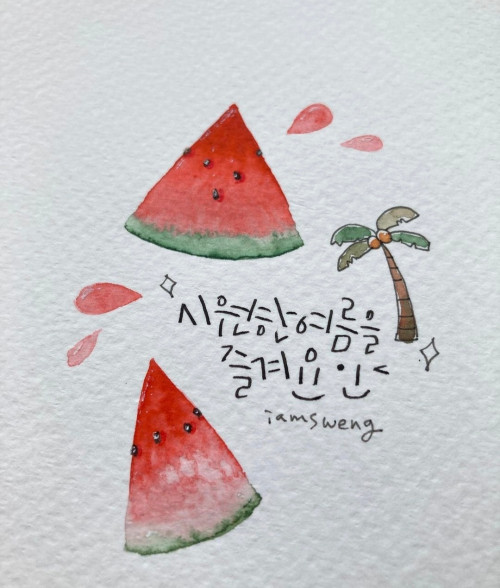 시원한 여름을
즐겨요
iamsweng